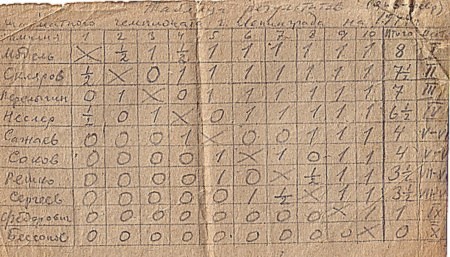 Таблица результатов
шахматного чемпионата г. Ленинграда на
Фамилия 1 2 3 4 5 6 7 8 9 10 Итого Место
Модель X ½ 1 ½ 1 1 1 1 1 1 8 I
Скляров ½ X 0 1 1 1 1 1 1 1 7½ II
0 1 X 0 1 1 1 1 1 1 7 III
Неслер ½ 0 1 X 0 1 1 1 1 1 6½
0 0 0 1 X 0 0 1 1 1 4 V-VI
Соков 0 0 0 0 1 X 1 0 1 1 4 V-VI
0 0 0 0 1 0 X ½ 1 1 3½ VII-VIII
Сергеев 0 0 0 0 0 1 ½ X 1 1 3½ VII-VIII
Федорович 0 0 0 0 0 0 0 0 X 1 1 IX
Бессонов 0 0 0 0 0 0 0 0 0 X 0 X